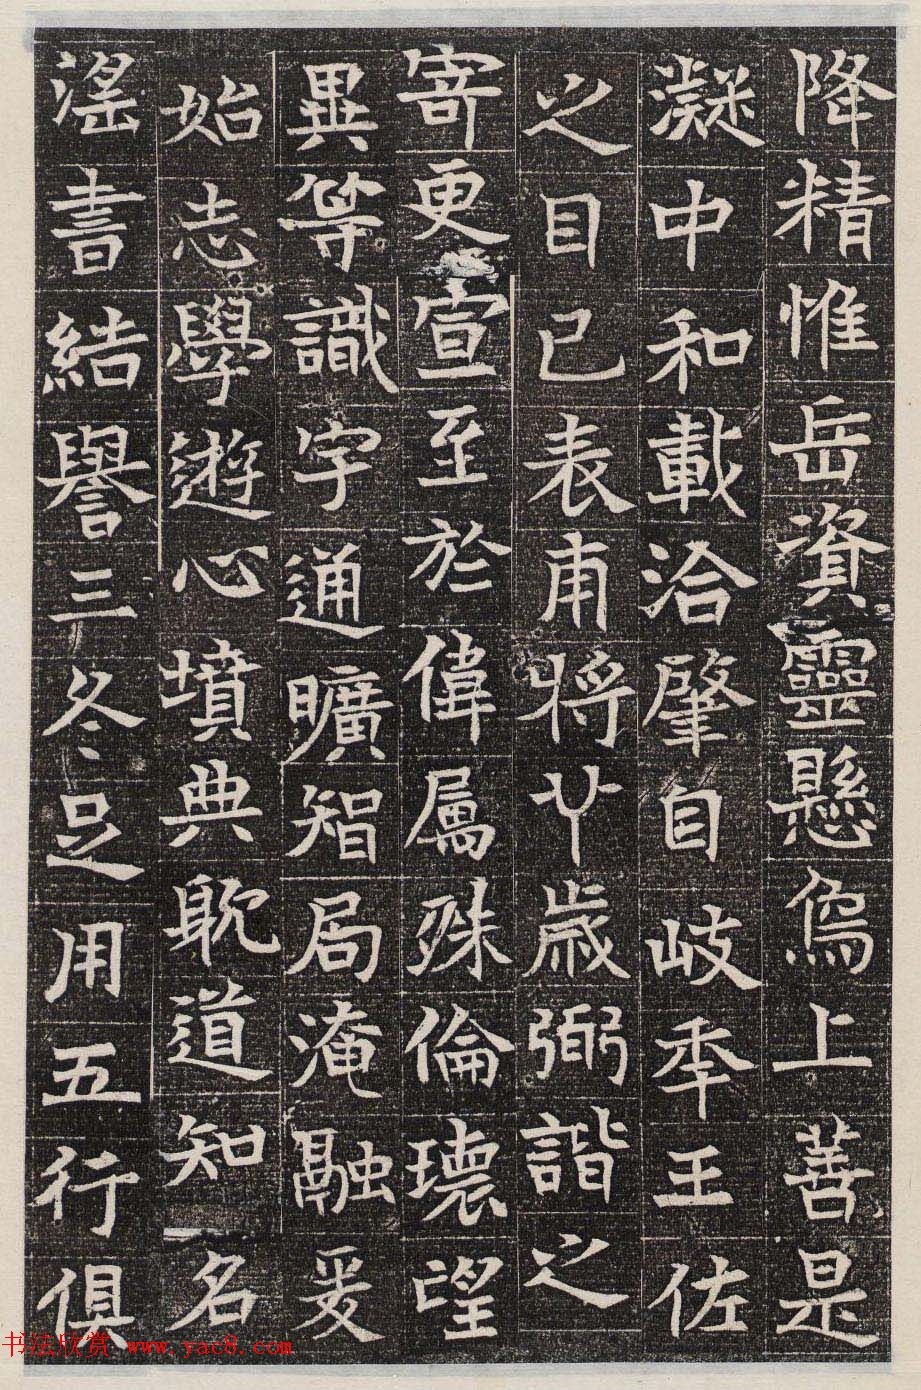 降精惟岳資靈懸烏上善是
凝中和載洽肇自岐年王佐
之目已表甫將廿歲弼諧之
寄更宣至於偉屬殊倫瓌望
異等識字通曠智局淹融爰
始志學遊心墳典耽道知名
滛書結譽三冬足用五行俱
书法欣赏 www.yac8.com